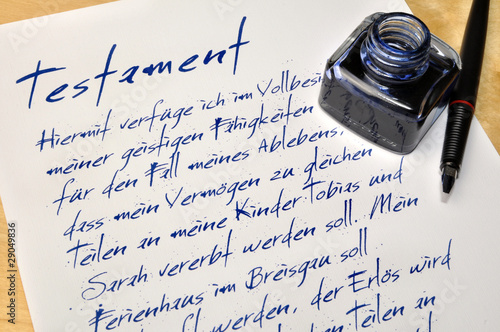 Testament
Hiermit verfüge ich im Vollbesi
meiner geistigen Fähigkeiten
für den Fall meines Ablebens,
dass mein Vermögen zu gleichen
Teilen an meine Kinder Tobias und
Sarah vererbt werden soll. Mein
Ferienhaus im Breisgau soll
werden, der Erlös wird
den Teilen an
Adobe Stock
#29049836